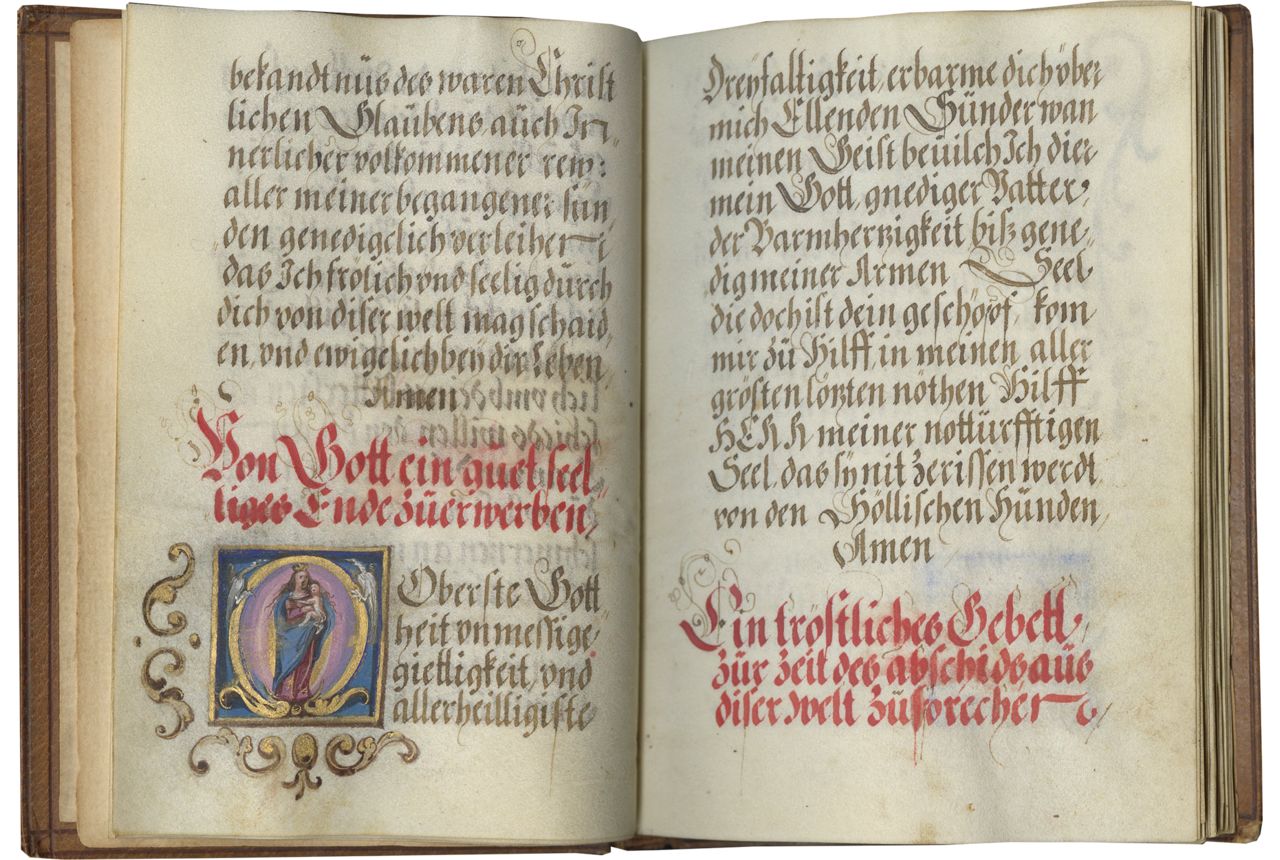 bekandtnüs des waren Christ
lichen Glaübens, aüch In⸗
nerlicher volkommener rew⸗
aller meiner begangener sün,
den genedigelich verleihen
das Ich frölich vnd seelig dürch
dich von diser welt mag schaid,
en, vnd ewigelich bey dir Leben,
Amen
Von Gott ein güet seel⸗
liges Ende züerwerben,
Oberste Gott
heit vnmessige,
giettigkeit, vnd
allerheilligiste
Dreyfaltigkeit, erbarme dich über
mich Ellenden Sünder wan
meinen Geist beuilch Ich dier
mein Gott, gnediger Vatter,
der Barmhertzigkeit biß gene⸗
dig meiner Armen Seel
die doch ist dein geschöpf, kom
mir zü Hilff, in meinen aller
grösten lötzten nöthen Hilff
HERR meiner nottürfftigen
Seel, das sy nit zerissen werdt,
von den Höllischen Hünden,
Amen
Ein tröstliches Gebett,
zür zeit des abschids aüs
diser welt züsprechen